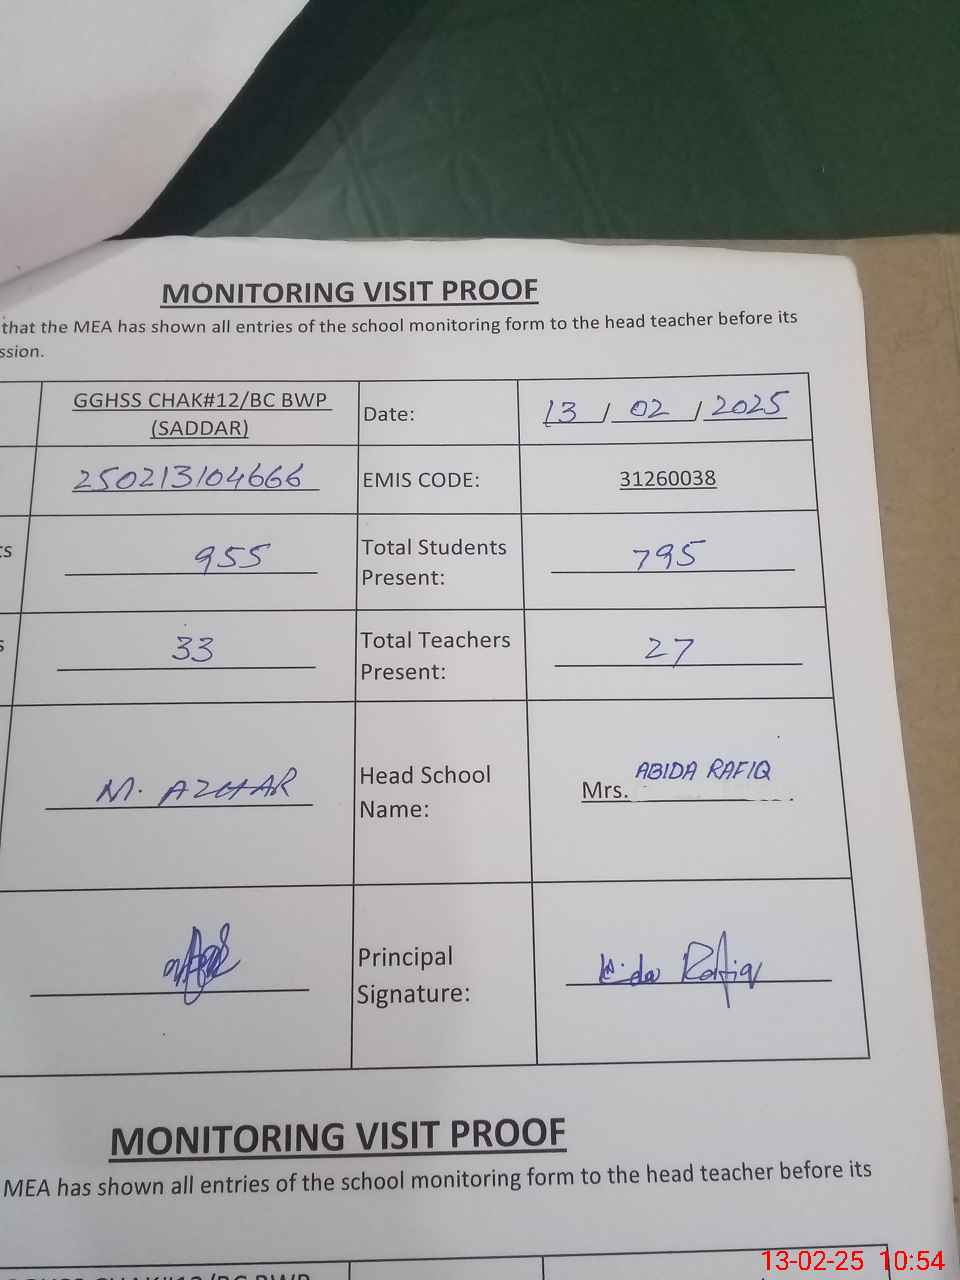 MONITORING VISIT PROOF
that the MEA has shown all entries of the school monitoring form to the head teacher before its
ssion.
GGHSS CHAK#12/BC BWP
(SADDAR)
Date:
13 / 02 / 2025
250213104666
EMIS CODE:
31260038
955
Total Students
Present:
795
33
Total Teachers
Present:
27
M. AZHAR
Head School
Name:
Mrs. ABIDA RAFIQ
Principal
Signature:
Rafiq
MONITORING VISIT PROOF
MEA has shown all entries of the school monitoring form to the head teacher before its
CHAK#12/BC BWP
13-02-25 10:54